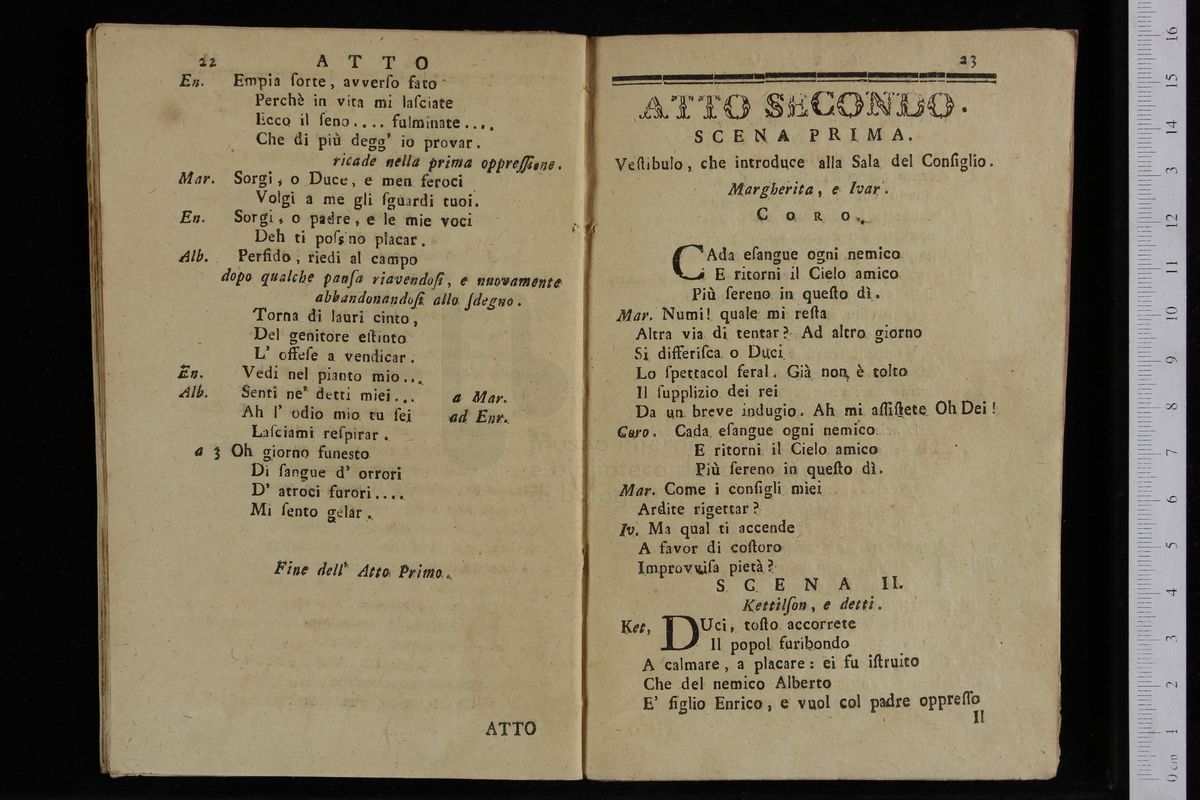 22 ATTO
En. Empia ſorte, avverſo fato
Perchè in vita mi laſciate
Ecco il ſeno.... fulminate....
Che di più degg' io provar.
ricade nella prima oppreſſione.
Mar. Sorgi, o Duce, e men feroci
Volgi a me gli ſguardi tuoi.
En. Sorgi, o padre, e le mie voci
Deh ti poſſno placar.
Alb. Perfido, riedi al campo
dopo qualche pauſa riavendoſi, e nuovamente
abbandonandoſi allo ſdegno.
Torna di lauri cinto,
Del genitore eſtinto
L' offeſe a vendicar.
En. Vedi nel pianto mio...
Alb. Senti ne' detti miei... a Mar.
Ah l' odio mio tu ſei ad Enr.
Laſciami reſpirar.
a 3 Oh giorno funeſto
Di ſangue d' orrori
D' atroci furori....
Mi ſento gelar.
Fine dell' Atto Primo.
ATTO
23
ATTO SECONDO.
SCENA PRIMA.
Veſtibulo, che introduce alla Sala del Conſiglio.
Margherita, e Ivar.
CORO.
CAda eſangue ogni nemico
E ritorni il Cielo amico
Più ſereno in queſto dì.
Mar. Numi! quale mi reſta
Altra via di tentar? Ad altro giorno
Si differiſca o Duci
Lo ſpettacol feral. Già non è tolto
Il ſupplizio dei rei
Da un breve indugio. Ah mi aſſiſtete Oh Dei!
Coro. Cada eſangue ogni nemico
E ritorni il Cielo amico
Più ſereno in queſto dì.
Mar. Come i conſigli miei
Ardite rigettar?
Iv. Ma qual ti accende
A favor di coſtoro
Improvviſa pietà?
SCENA II.
Kettilſon, e detti.
Ket, DUci, toſto accorrete
Il popol furibondo
A calmare, a placare: ei fu iſtruito
Che del nemico Alberto
E' figlio Enrico, e vuol col padre oppreſſo
Il